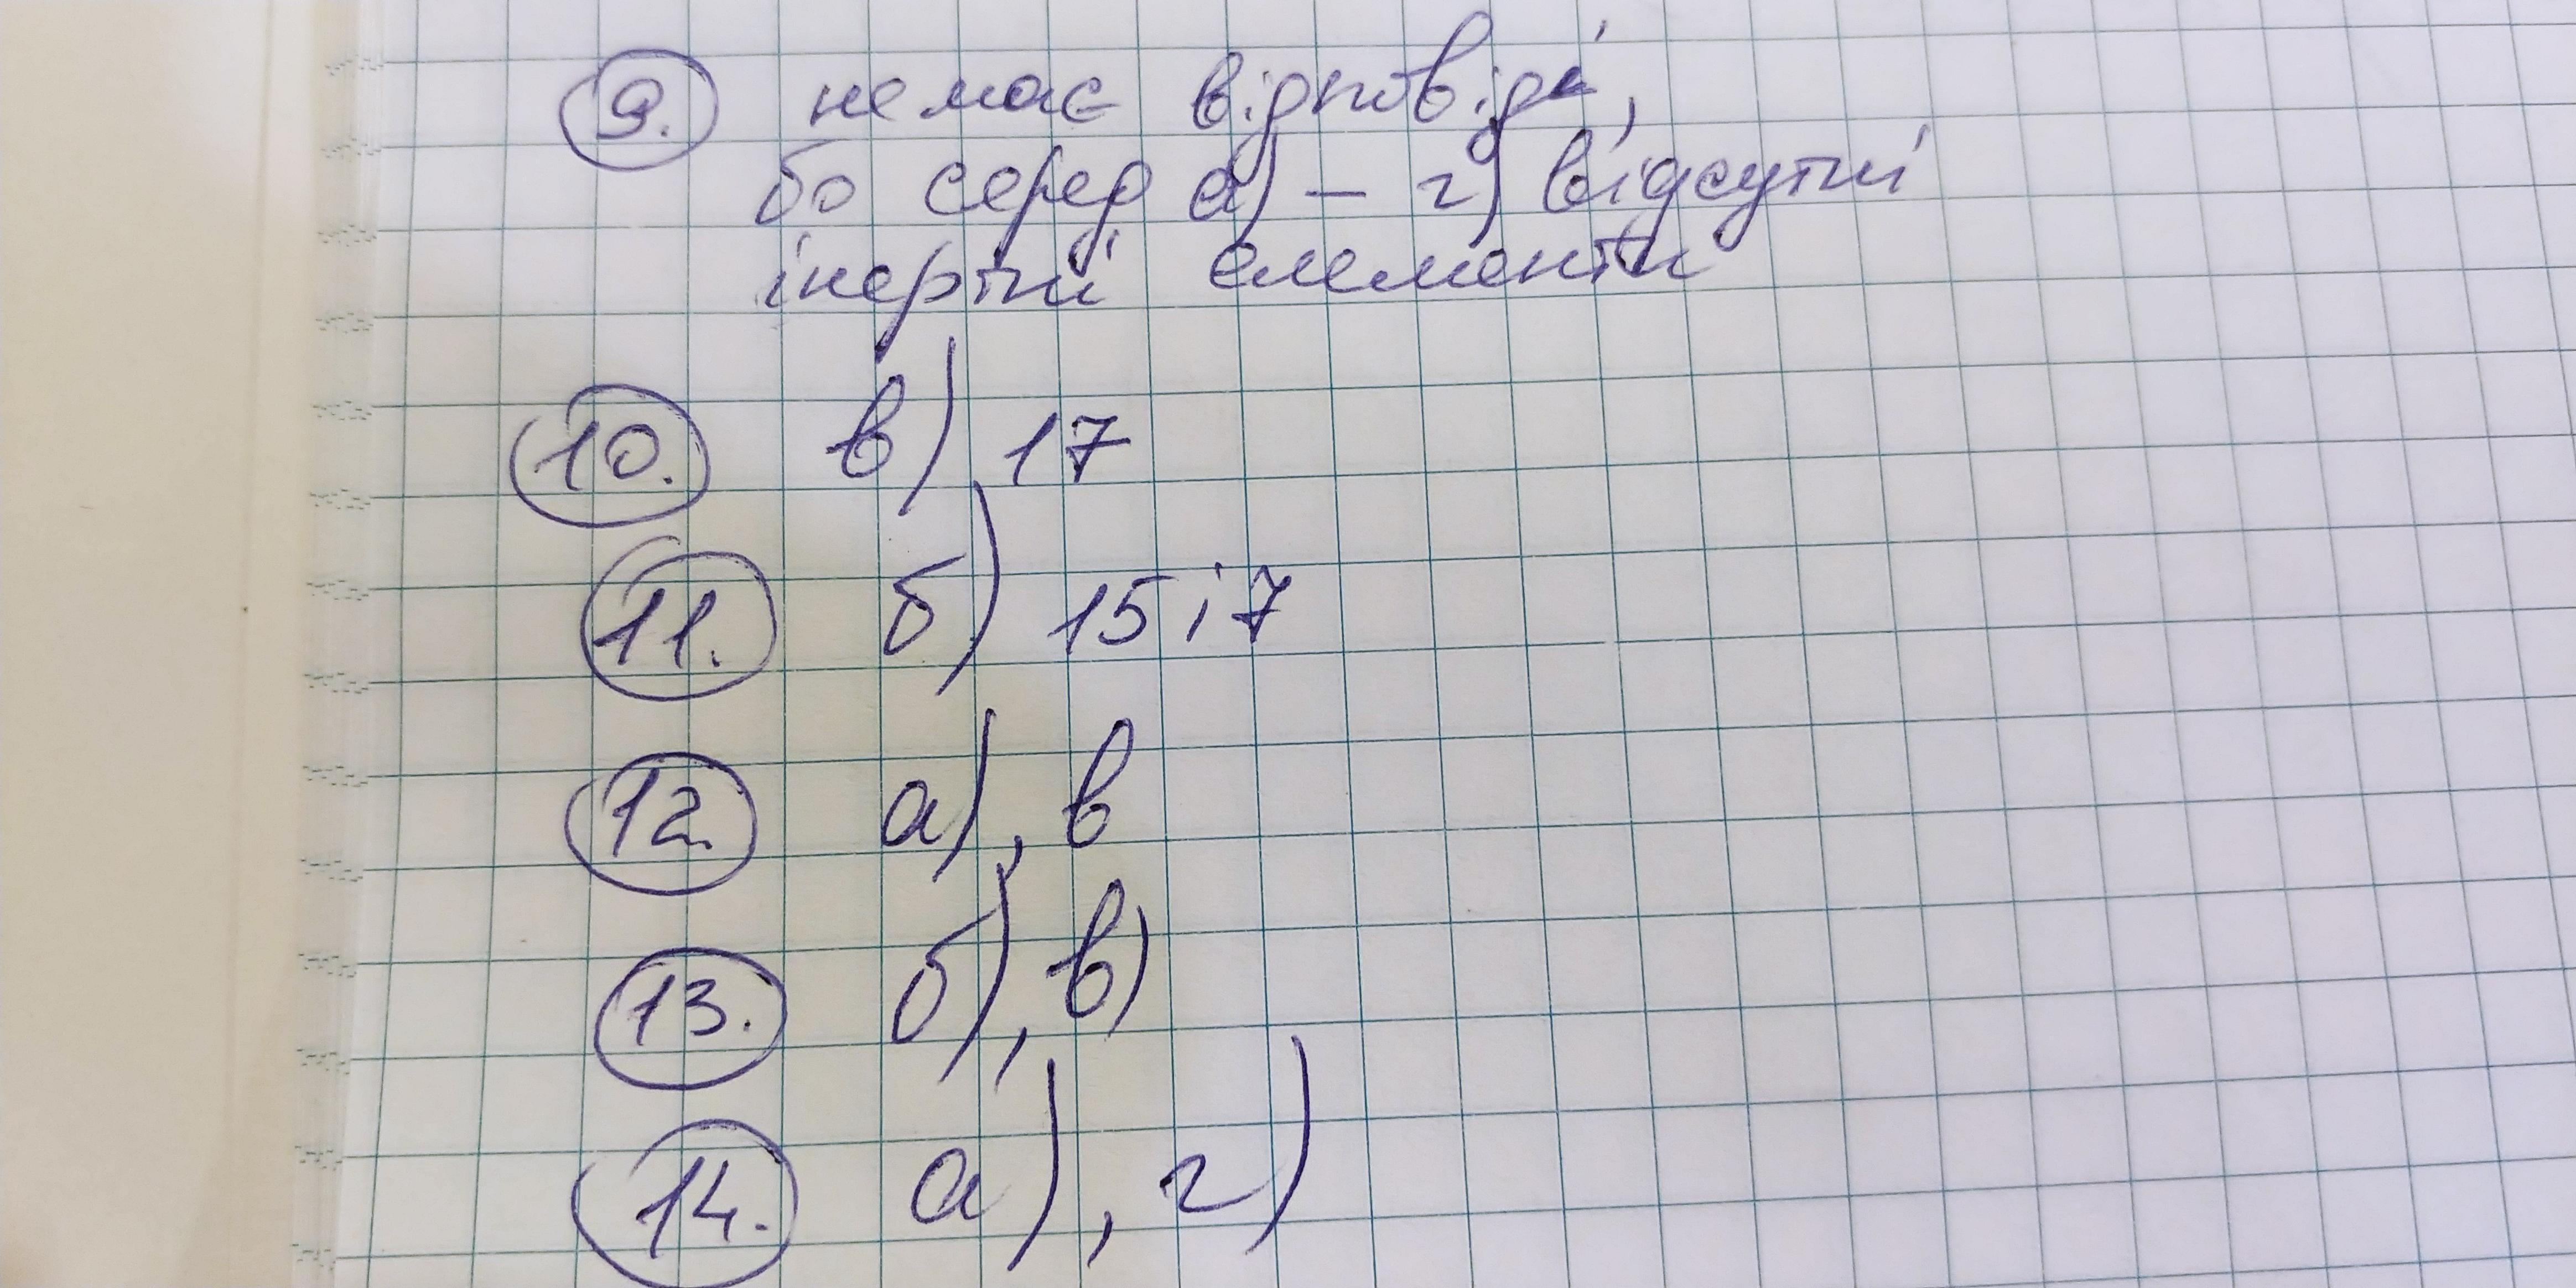 9. немає відповіді,
бо серед а) – г) відсутні
інертні елементи
10. в) 17
11. б) 15 і 7
12. а), в
13. б), в)
14. а), г)